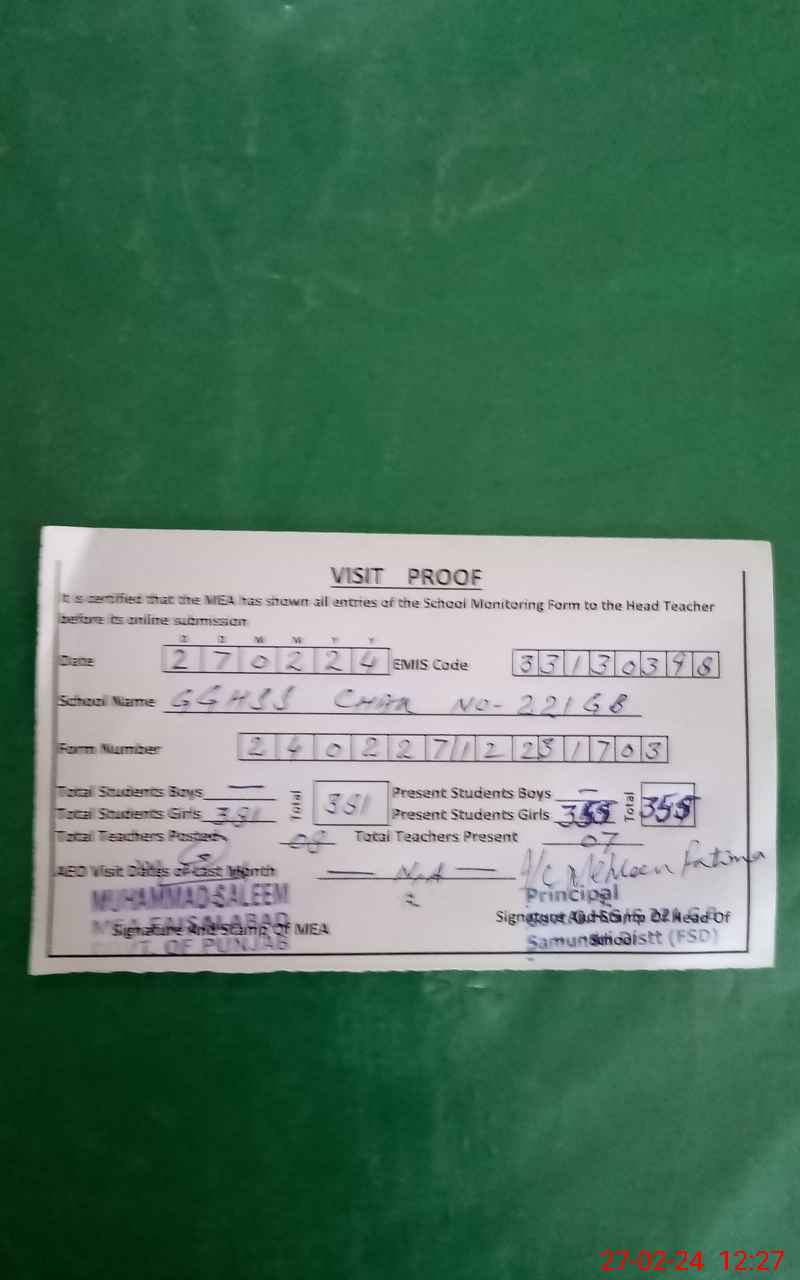 VISIT PROOF
It is certified that the MEA has shown all entries of the School Monitoring Form to the Head Teacher
before its online submission
D D M M Y Y
Date 270224 EMIS Code 33130398
School Name GGHSS CHAK NO-221GB
Form Number
Total Students Boys — Total 381 Present Students Boys — Total 355
Total Students Girls 381 Present Students Girls 355
Total Teachers Posted 08 Total Teachers Present 07
AEO Visit Dates of Last Month — N.A — I/C Mehleen Fatima
MUHAMMAD SALEEM Principal
MEA FAISALABAD
Signature And Stamp Of MEA Signature And Stamp Of Head Of
GOVT. OF PUNJAB School
Samundri Distt (FSD)
27-02-24 12:27